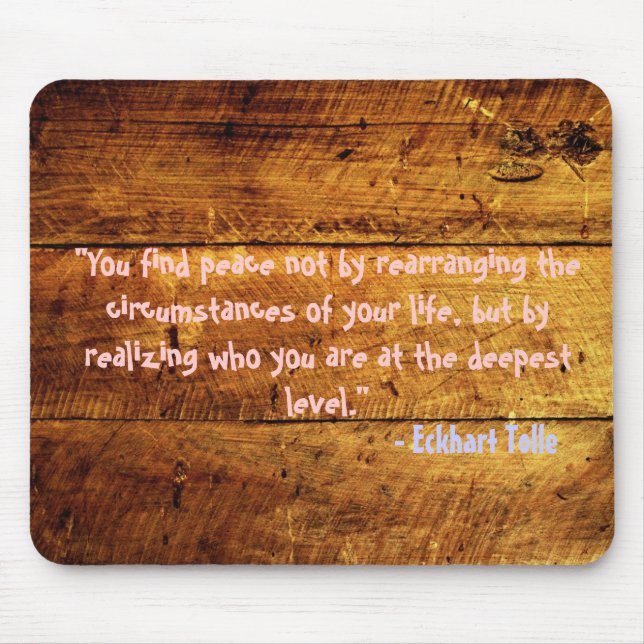 "You find peace not by rearranging the
circumstances of your life, but by
realizing who you are at the deepest
level."
- Eckhart Tolle